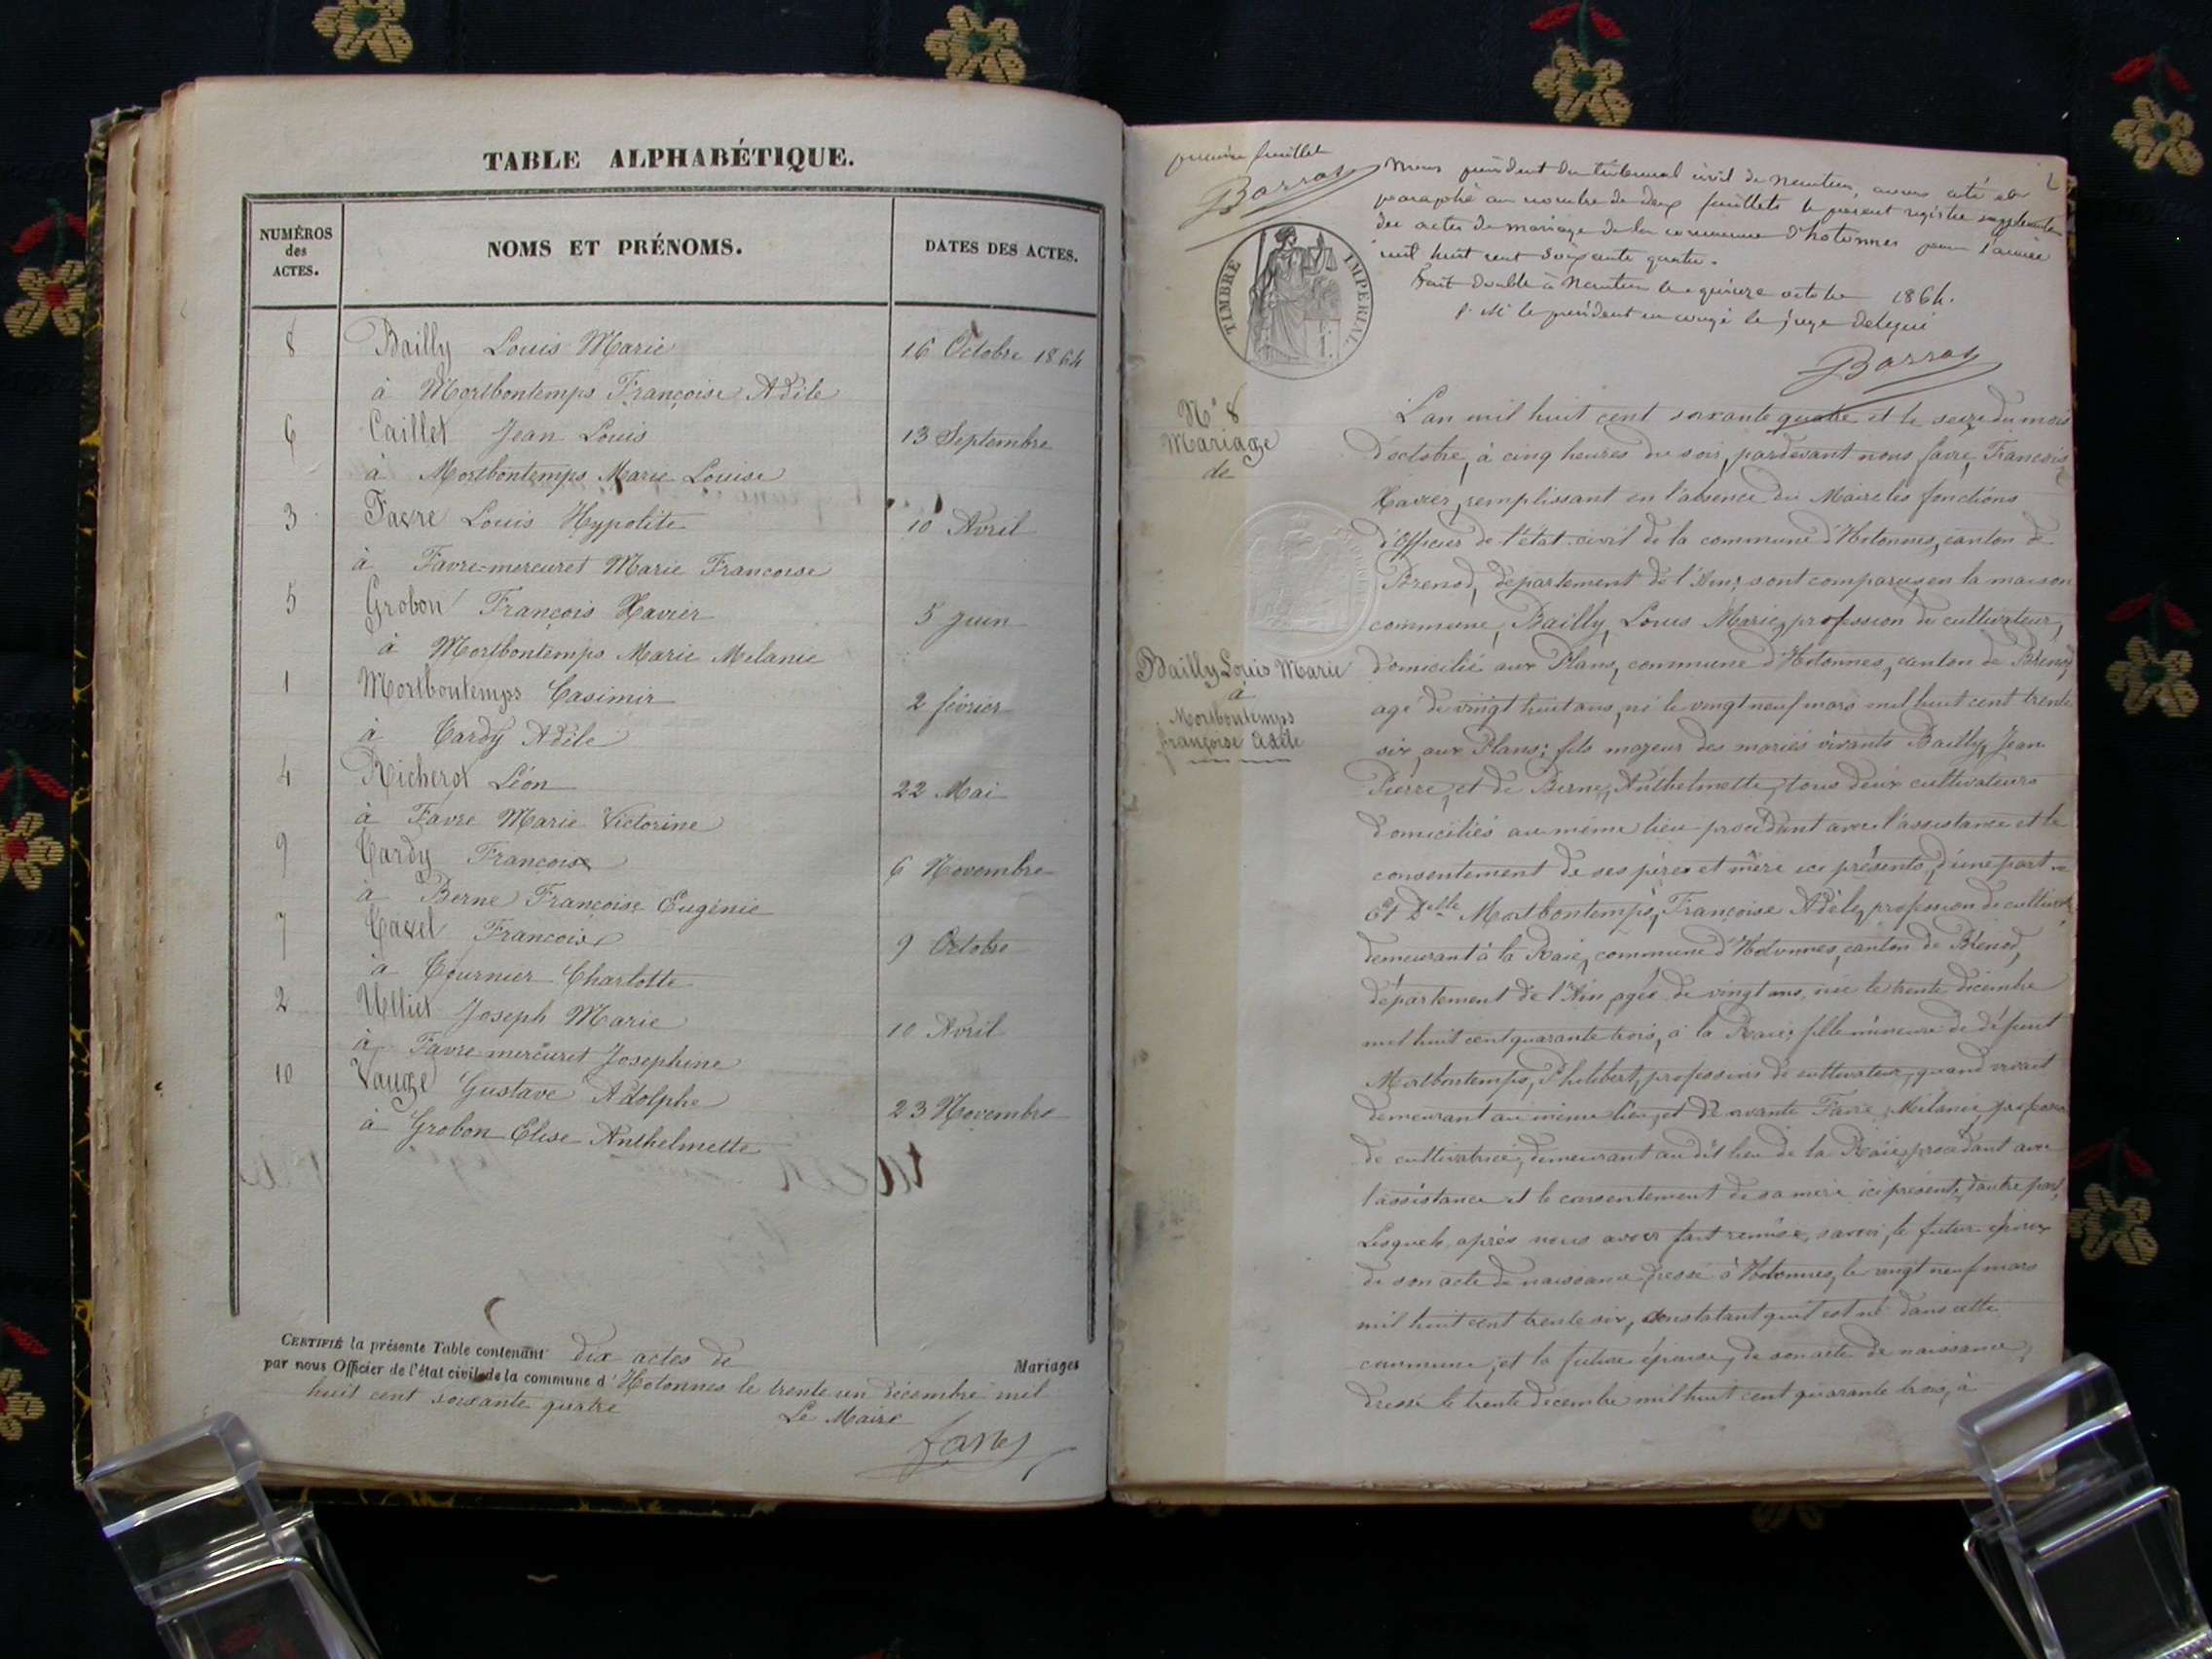 TABLE ALPHABÉTIQUE.
NUMÉROS des ACTES.
NOMS ET PRÉNOMS.
DATES DES ACTES.
8 Bailly Louis Marie 16 Octobre 1864
à Mortbontemps Françoise Adèle
6 Caillet Jean Louis 13 Septembre
à Mortbontemps Marie Louise
3 Favre Louis Hypolite 10 Avril
à Favre-mercuret Marie Francoise
5 Grobon François Xavier 5 juin
à Mortbontemps Marie Melanie
1 Mortbontemps Casimir 2 février
à Tardy Adèle
4 Richerot Léon 22 Mai
à Favre Marie Victorine
9 Tardy François 6 Novembre
à Berne Françoise Eugénie
7 Tavel François 9 Octobre
à Tournier Charlotte
2 Ulliet Joseph Marie 10 Avril
à Favre-mercuret Josephine
10 Vauge Gustave Adolphe 23 Novembre
à Grobon Elise Anthelmette
CERTIFIÉ la présente Table contenant dix actes de Mariages
par nous Officier de l'état civil de la commune d'Hotonnes le trente un décembre mil
huit cent soixante quatre
Le Maire
premier feuillet
Barras
Nous président du tribunal civil de Nantua, avons coté et
paraphé au nombre de deux feuillets le présent registre supplémentaire
des actes de mariage de la commune d'hotonnes pour l'année
mil huit cent soixante quatre.
Fait double à Nantua le quinze octobre 1864.
le président en congé le juge délégué
Barras
TIMBRE IMPERIAL
N° 8
Mariage
de
Bailly Louis Marie
à
Mortbontemps
françoise adèle
L'an mil huit cent soixante quatre et le seize du mois
d'octobre, à cinq heures du soir, pardevant nous favre, François
Xavier, remplissant en l'absence du Maire les fonctions
d'Officier de l'état-civil de la commune d'Hotonnes, canton de
Brenod, département de l'Ain, sont comparus en la maison
commune, Bailly, Louis Marie, profession de cultivateur,
domicilié aux Plans, commune d'Hotonnes, canton de Brenod,
agé de vingt huit ans, né le vingt neuf mars mil huit cent trente
six, aux Plans; fils majeur des mariés vivants Bailly, Jean
Pierre, et de Berne, Anthelmette, tous deux cultivateurs
domiciliés au même lieu procédant avec l'assistance et le
consentement de ses père et mère ici présents, d'une part
Et Delle Mortbontemps, Françoise Adèle, profession de cultivatrice
demeurant à la Raie, commune d'Hotonnes, canton de Brenod,
département de l'Ain, agée de vingt ans, née le trente décembre
mil huit cent quarante trois, à la Raie; fille mineure de défunt
Mortbontemps, Philibert, profession de cultivateur, quand vivait
demeurant au même lieu, et de vivante Favre, Mélanie, profession
de cultivatrice, demeurant au dit lieu de la Raie, procédant avec
l'assistance et le consentement de sa mère ici présente, d'autre part,
Lesquels, après nous avoir fait remise, savoir, le futur époux
de son acte de naissance, dressé à Hotonnes, le vingt neuf mars
mil huit cent trente six, constatant qu'il est né dans cette
commune; et la future épouse, de son acte de naissance,
dressé le trente decembre mil huit cent quarante trois, à